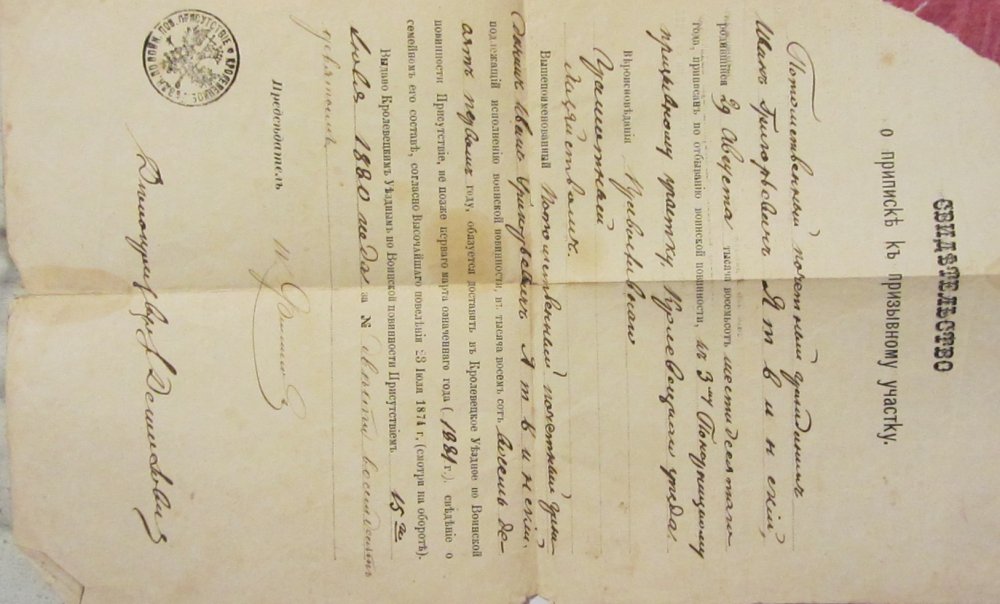 СВИДѢТЕЛЬСТВО
о припискѣ къ призывному участку.
Потомственный почетный гражданинъ
Иванъ Григорьевичъ Ятвинскій,
родившійся 29 Августа тысяча восемьсотъ шестидесятаго
года, приписанъ по отбыванію воинской повинности, къ 3му
призывному участку, Кролевецкаго уѣзда.
Вѣроисповѣданія
Вышепоименованный Потомственный почетный граж-
данинъ Иванъ Григорьевичъ Ятвинскій,
подлежащій исполненію воинской повинности, въ тысяча восемь сотъ восемь де-
сятъ первомъ году, обязуется доставить въ Кролевецкое Уѣздное по Воинской
повинности Присутствіе, не позже перваго марта означеннаго года (1881 г.). свѣдѣніе о
семейномъ его составѣ, согласно Высочайшаго повелѣнія 23 Іюля 1874 г. (смотри на оборотѣ).
Выдано Кролевецкимъ Уѣзднымъ по Воинской повинности Присутствіемъ 15го
1880 года за № восемьдесятъ
девятымъ
Предсѣдатель
Дѣлопроизводитель
КРОЛЕВЕЦКОЕ ПОВИН. ПРИСУТСТВІЕ